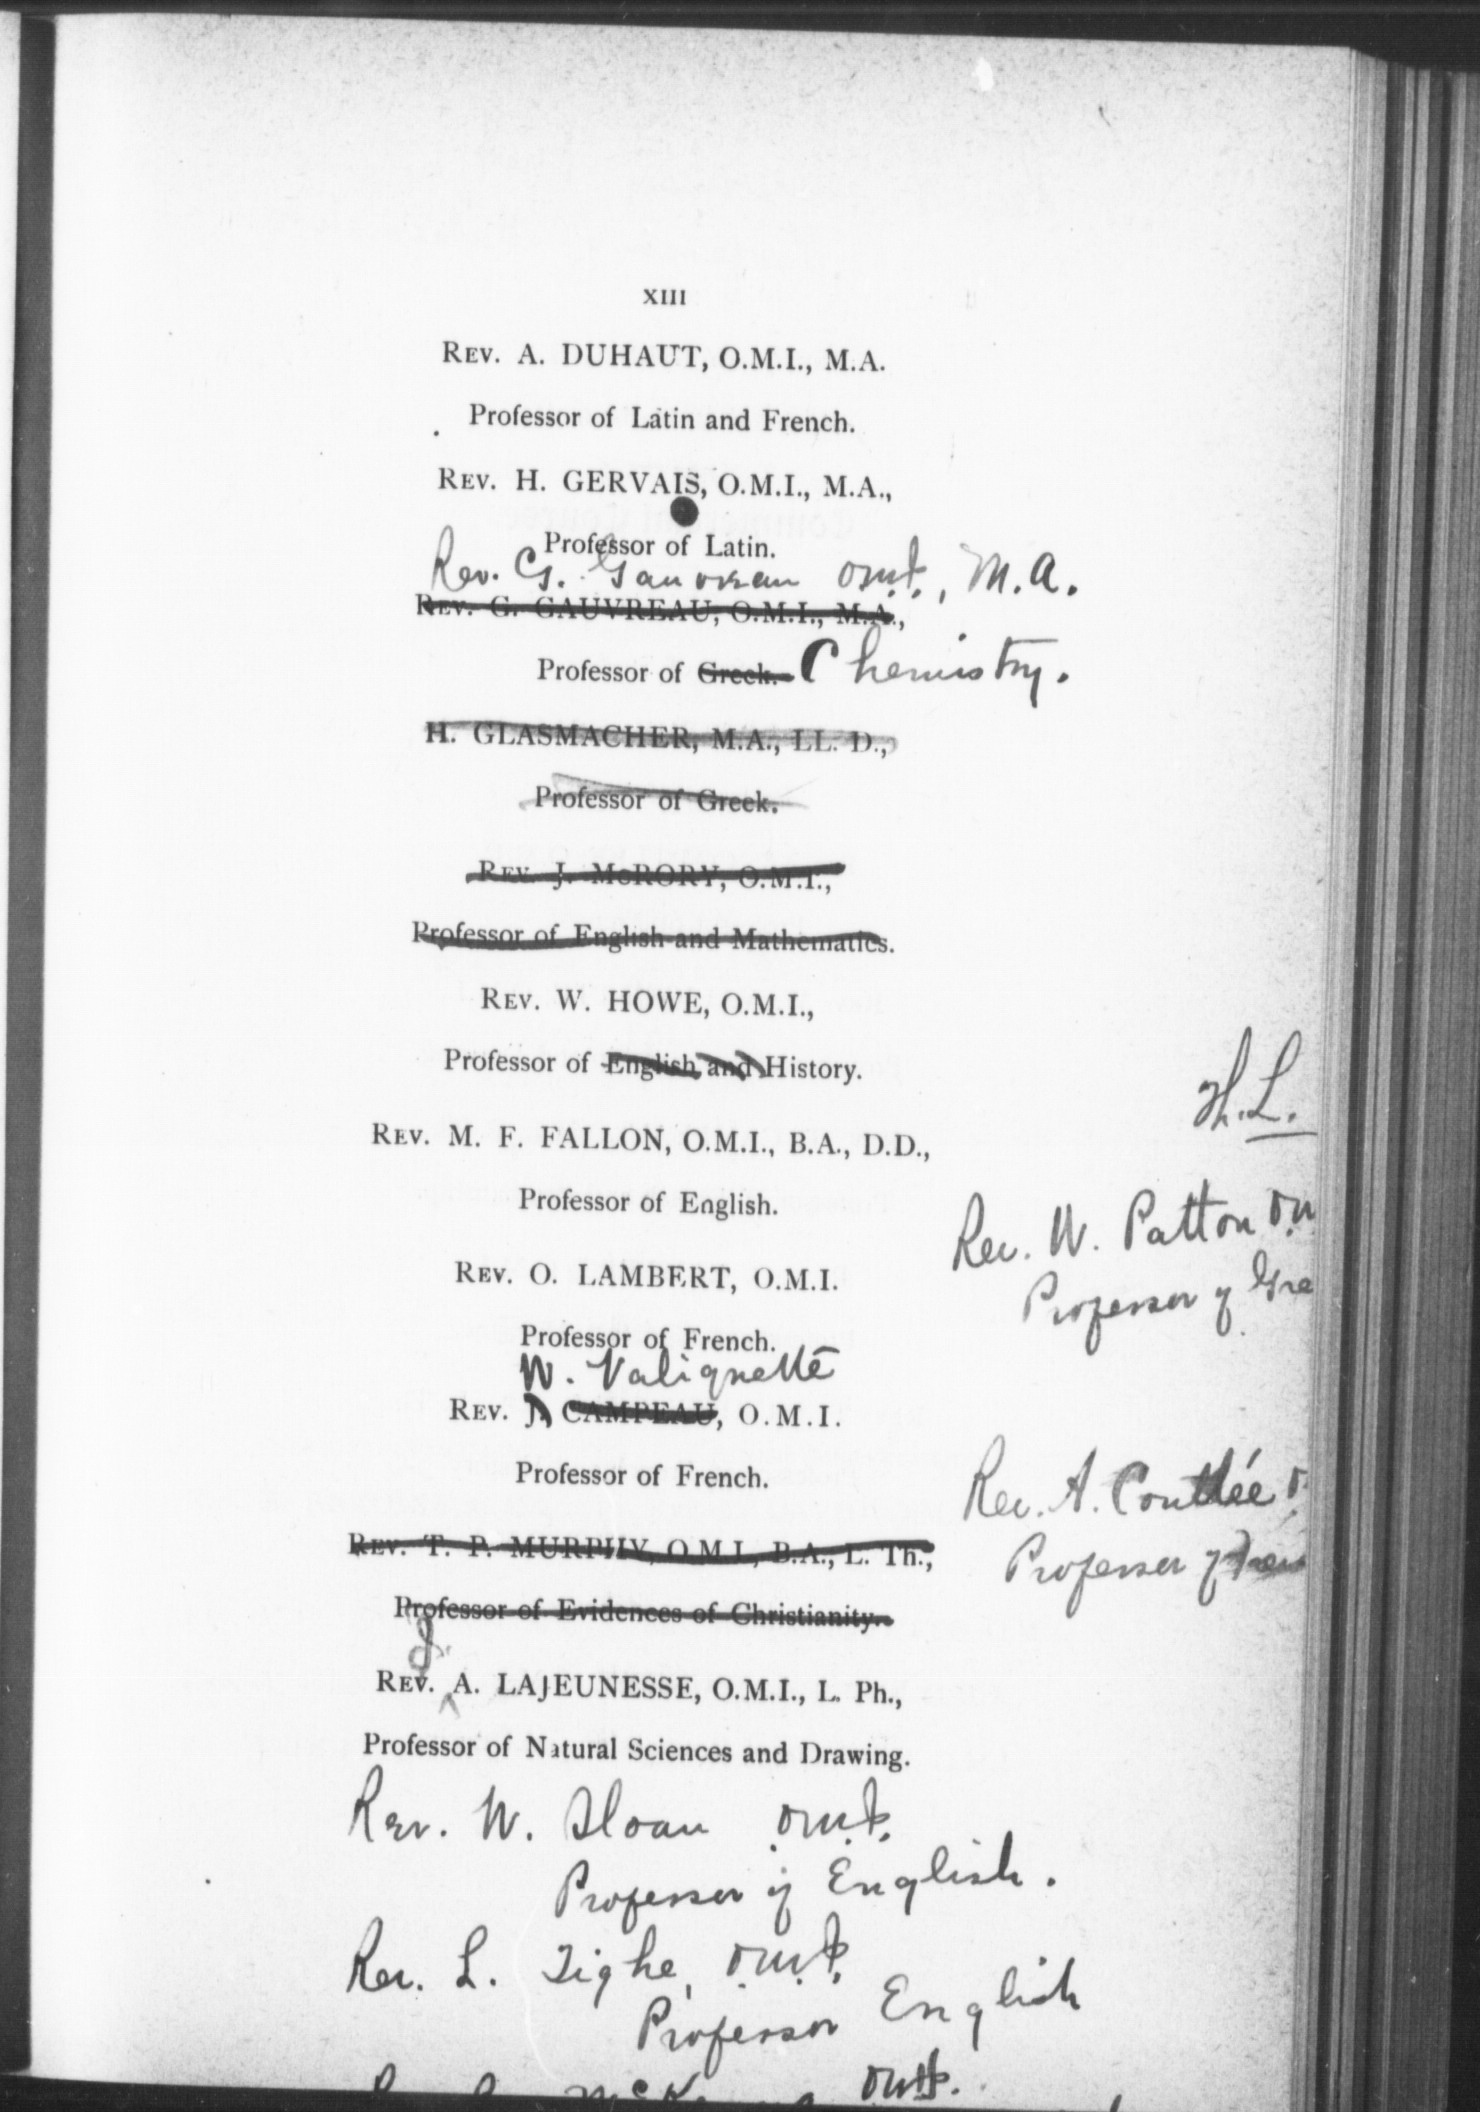 XIII
REV. A. DUHAUT, O.M.I., M.A.
Professor of Latin and French.
REV. H. GERVAIS, O.M.I., M.A.,
Professor of Latin.
Rev. G. Gauvreau O.M.I., M.A.
REV. G. GAUVREAU, O.M.I., M.A.,
Professor of Greek. Chemistry.
H. GLASMACHER, M.A., LL. D.,
Professor of Greek.
REV. J. McRORY, O.M.I.,
Professor of English and Mathematics.
REV. W. HOWE, O.M.I.,
Professor of English and History.
H.L.
REV. M. F. FALLON, O.M.I., B.A., D.D.,
Professor of English.
Rev. W. Patton O.M
Professor of Gre
REV. O. LAMBERT, O.M.I.
Professor of French.
W. Valiquette
REV. J. CAMPEAU, O.M.I.
Professor of French.
Rev. A. Couthée O.
Professor of Fren
REV. T. P. MURPHY, O.M.I., B.A., L. Th.,
Professor of Evidences of Christianity.
REV. A. LAJEUNESSE, O.M.I., L. Ph.,
Professor of Natural Sciences and Drawing.
Rev. W. Sloan O.M.I.
Professor of English.
Rev. L. Tighe, O.M.I.
Professor English
O.M.I.